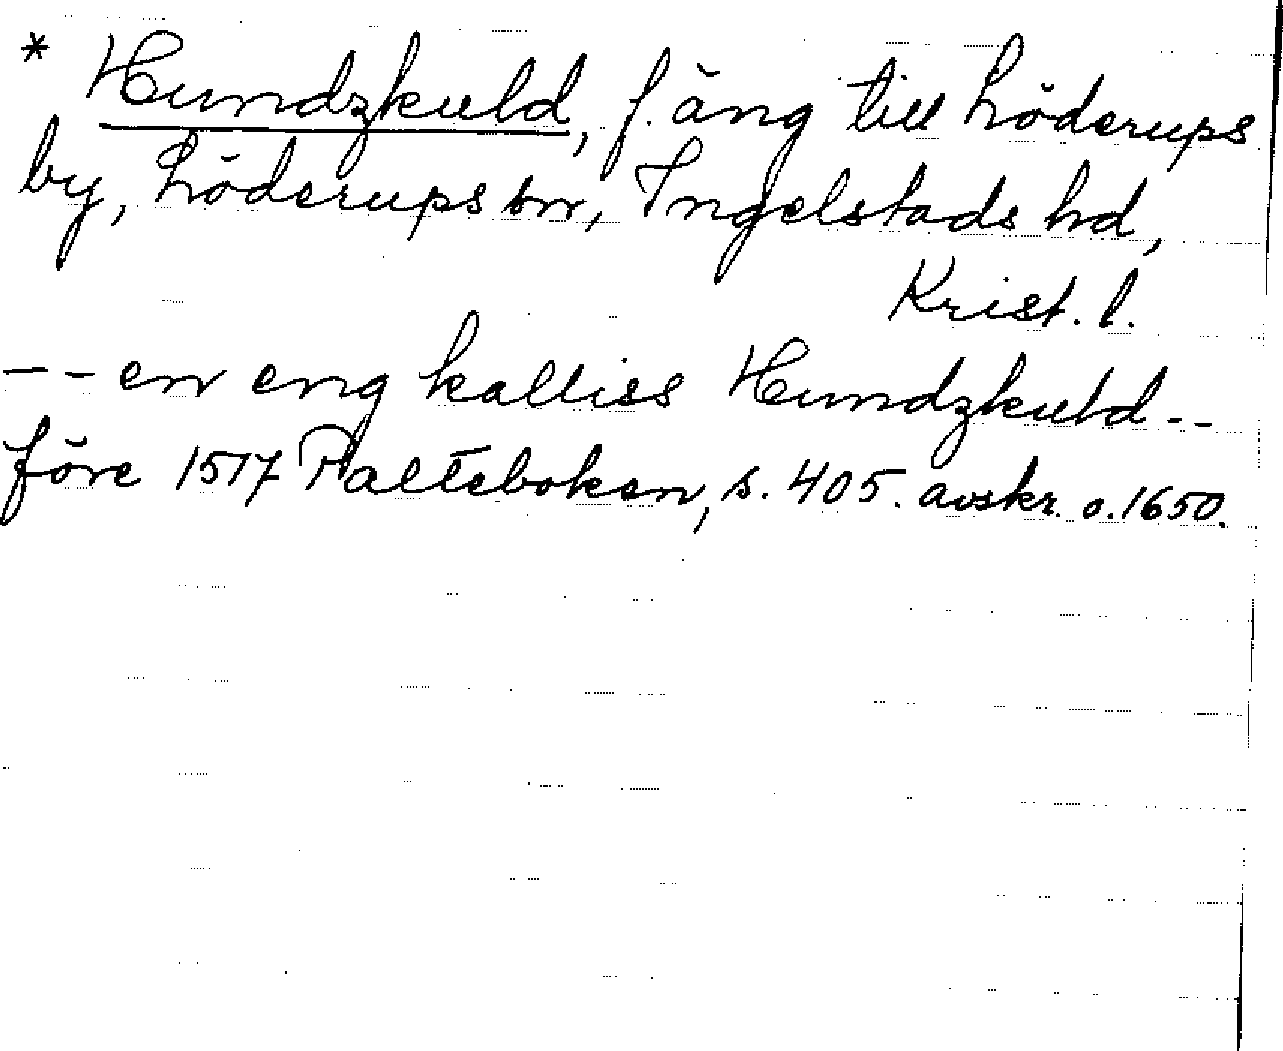 * Hundzkuld, f. äng till Löderups
by, Löderups sn, Ingelstads hd,
Krist. l.
-- en eng kalliss Hundzkuld--
före 1517 Palteboken, s. 405. avskr. o. 1650.